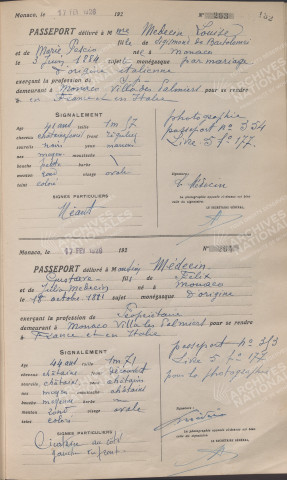 Monaco, 17 FEV 1926 192 Nº 253
PASSEPORT délivré à Mme Médecin Louise
fille de
et de Marie née à Monaco
3 juin 1884 sujet monégasque par mariage
d'origine italienne
exerçant la profession de s. p.
demeurant à Monaco Villa les Palmiers pour se rendre
à en France et en Italie
SIGNALEMENT
âge 41 ans taille 1m
cheveux front
sourcils noirs yeux marron
nez moyen moustaches
bouche petite barbe
menton rond visage ovale
teint coloré
SIGNES PARTICULIERS
Néant
photographie
passeport nº 334
Livre 5 fº 177
Signature :
L. Médecin
LE SECRÉTAIRE GÉNÉRAL,
Monaco, 17 FEV 1926 192
PASSEPORT délivré à Monsieur Médecin
Gustave fils de Félix
et de Médecin né à Monaco
le 18 octobre 1881 sujet monégasque d'origine
exerçant la profession de Propriétaire
demeurant à Monaco Villa les Palmiers pour se rendre
à France et en Italie
SIGNALEMENT
âge 44 ans taille 1m 71
cheveux châtains front découvert
sourcils châtains yeux châtains
nez moyen moustaches châtains
bouche moyenne barbe
menton rond visage ovale
teint coloré
SIGNES PARTICULIERS
Cicatrice au côté
gauche du front
passeport nº 313
Livre 5 fº 177
pour la photographie
Signature :
LE SECRÉTAIRE GÉNÉRAL,
ARCHIVES
NATIONALES